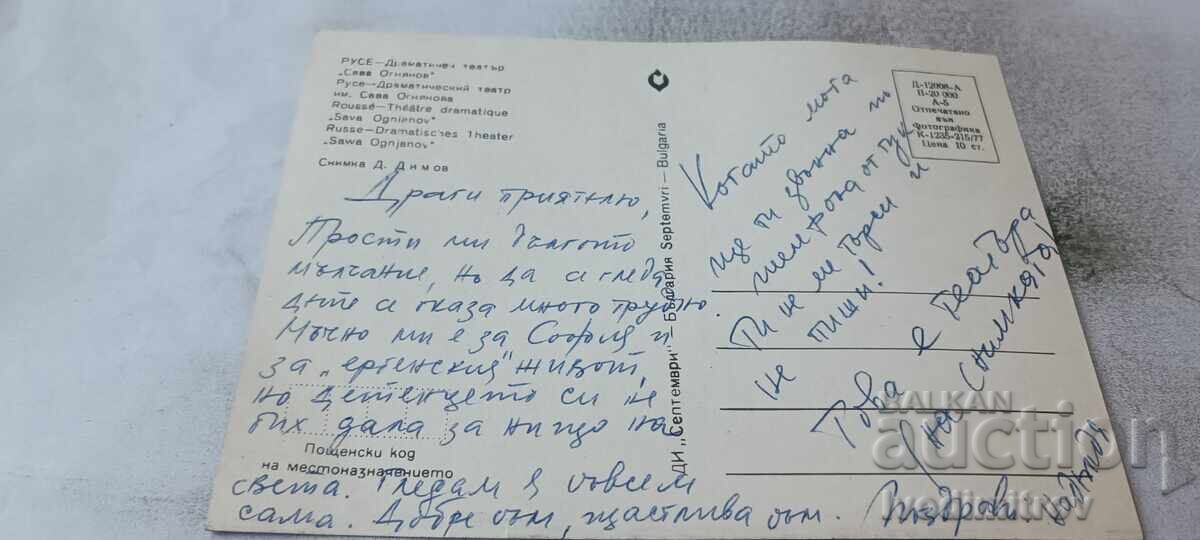 РУСЕ—Драматичен театър
„Сава Огнянов"
Русе—Драматический театр
им. Сава Огнянова
Roussé—Théâtre dramatique
„Sava Ognianov"
Russe—Dramatisches Theater
„Sawa Ognjanov"
Снимка Д. Димов
Драги приятелю,
Прости ми дългото
мълчание, но да си гледа
дете се оказа много трудно.
Мъчно ми е за София и
за „ергенския" живот,
но детенцето си не
бих дала за нищо на
света. Гледам я съвсем
сама. Добре съм, щастлива съм.
Пощенски код
на местоназначението
ДИ „Септември" — България Septemvri — Bulgaria
Д-12008-А
П-20 000
А-6
Отпечатано
във
Фотографика
К-1235-215/77
Цена 10 ст.
Когато мога
ще ти звънна по
телефона от тук
Ти не ме търси и
не пиши!
Това е театъра
на снимката!
Поздрави.
BALKAN
auction
hedimitrov